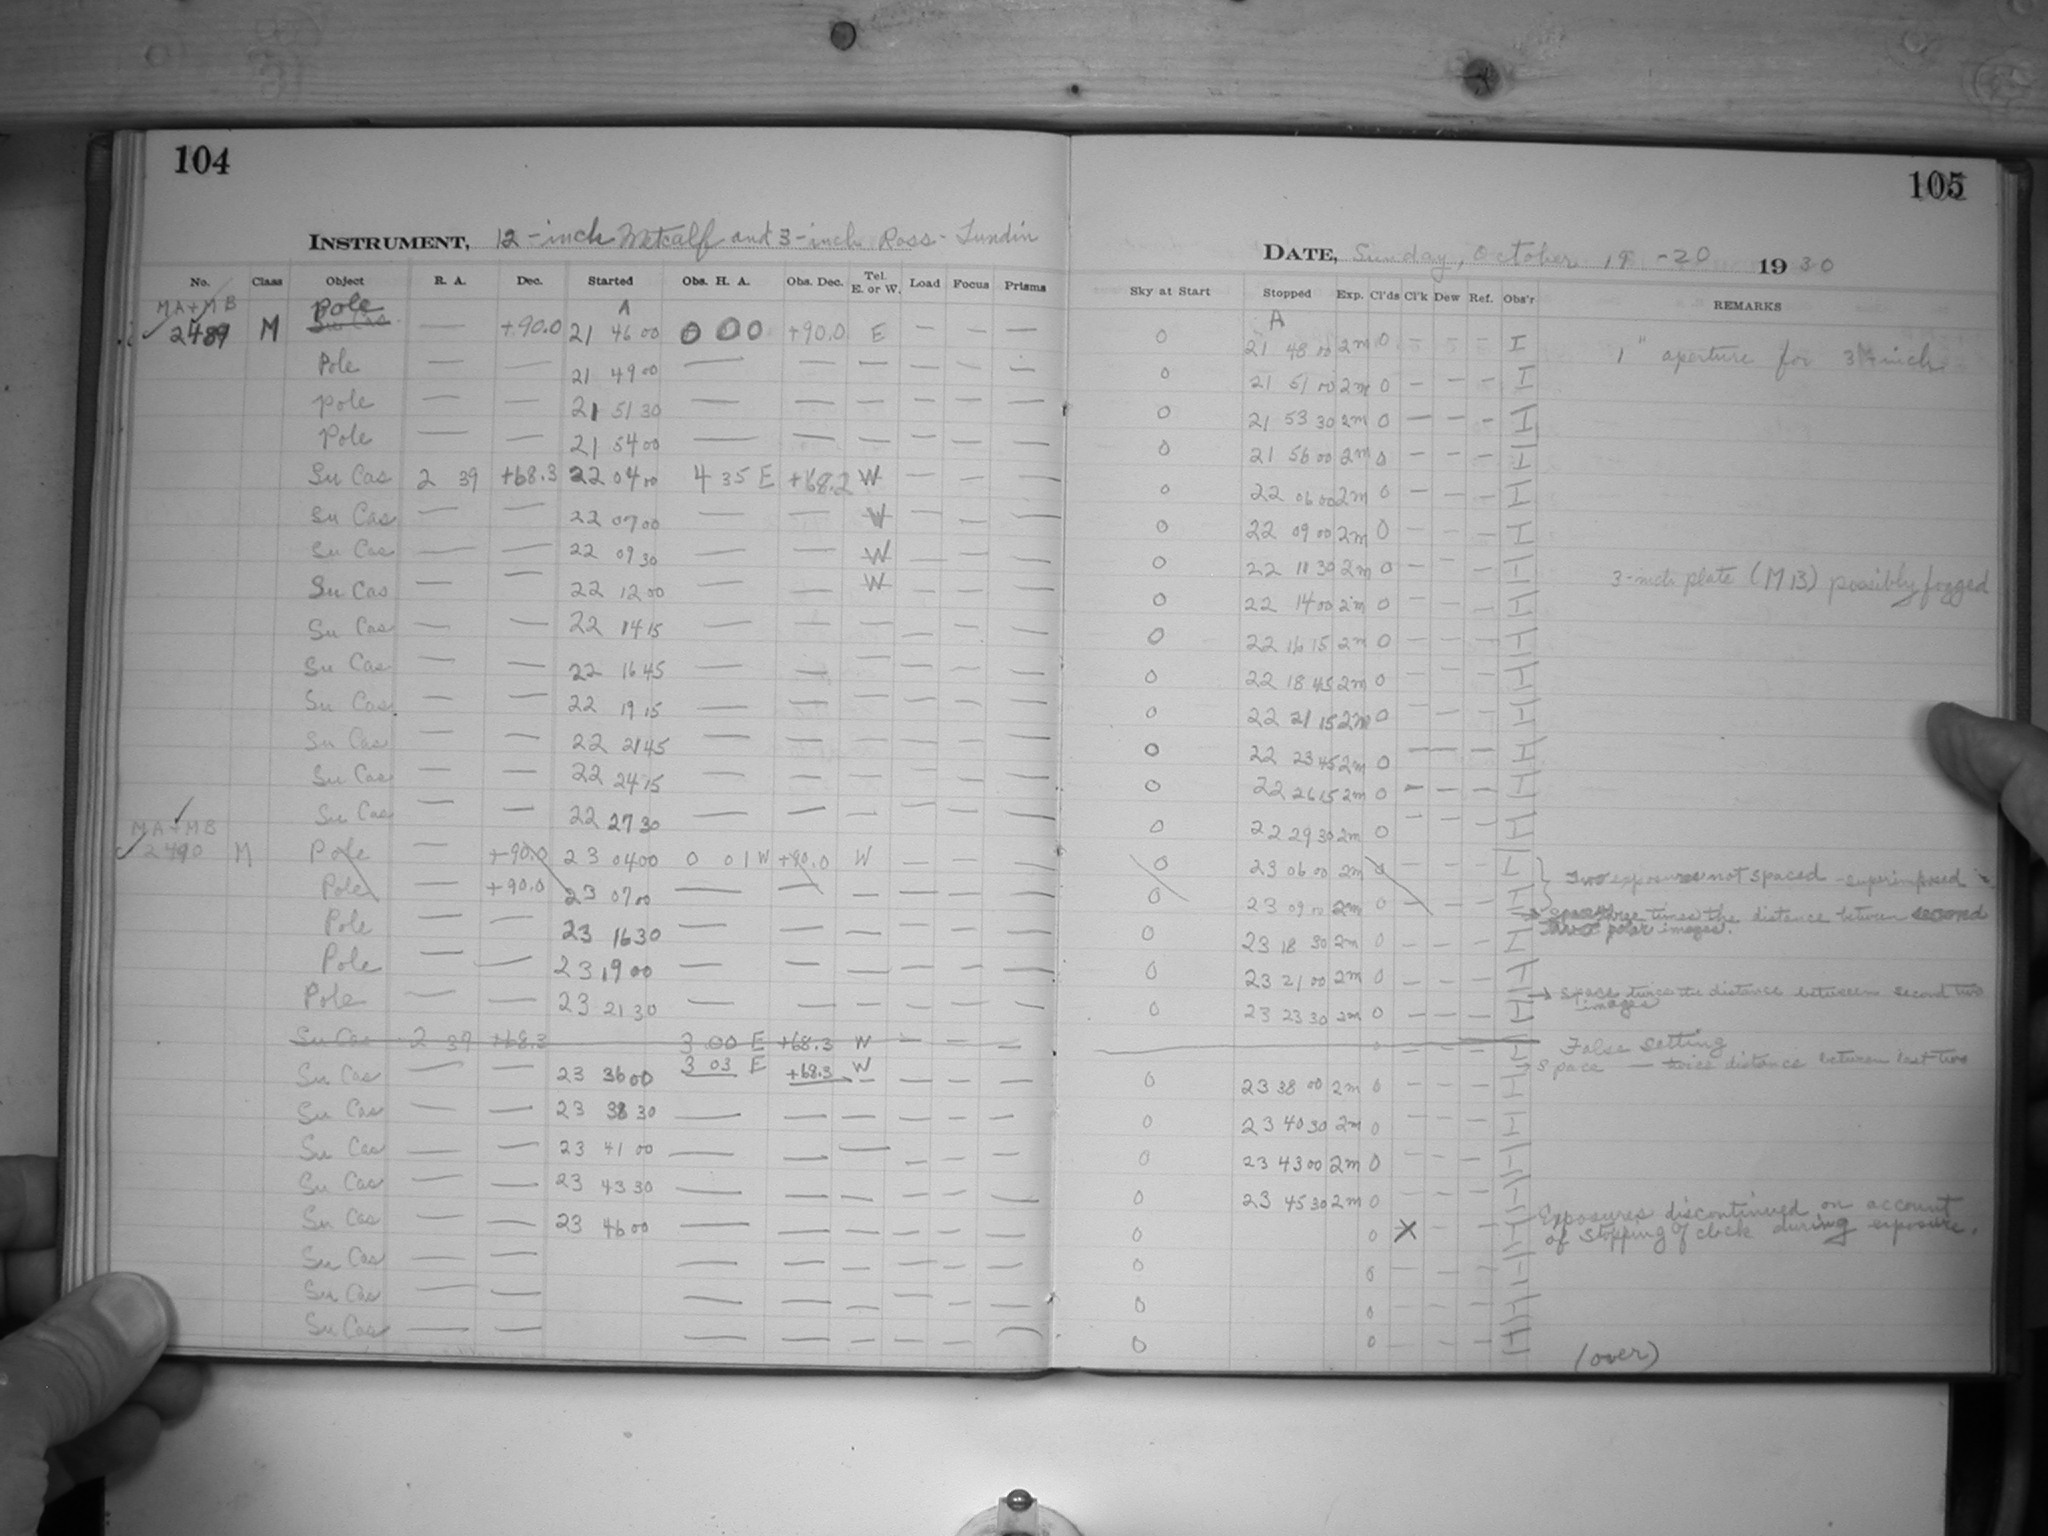 104
INSTRUMENT, 12-inch Metcalf and 3-inch Ross-Lundin
No. Class Object R. A. Dec. Started Obs. H. A. Obs. Dec. Tel. E. or W. Load Focus Prisms
MA+MB Pole A
2489 M Su Cas — +90.0 21 46 00 0 00 +90.0 E — — —
Pole — — 21 49 00 — — — — — —
Pole — — 21 51 30 — — — — — —
Pole — — 21 54 00 — — — — — —
Su Cas 2 39 +68.3 22 04 00 4 35 E +68.2 W — — —
Su Cas — — 22 07 00 — — W — — —
Su Cas — — 22 09 30 — — W — — —
Su Cas — — 22 12 00 — — W — — —
Su Cas — — 22 14 15 — — — — — —
Su Cas — — 22 16 45 — — — — — —
Su Cas — — 22 19 15 — — — — — —
Su Cas — — 22 21 45 — — — — — —
Su Cas — — 22 24 15 — — — — — —
Su Cas — — 22 27 30 — — — — — —
MA+MB
2490 M Pole — +90.0 23 04 00 0 01 W +90.0 W — — —
Pole — +90.0 23 07 00 — — — — — —
Pole — — 23 16 30 — — — — — —
Pole — — 23 19 00 — — — — — —
Pole — — 23 21 30 — — — — — —
Su Cas 2 39 +68.3 3 00 E +68.3 W — — —
Su Cas — — 23 36 00 3 03 E +68.3 W — — —
Su Cas — — 23 38 30 — — — — — —
Su Cas — — 23 41 00 — — — — — —
Su Cas — — 23 43 30 — — — — — —
Su Cas — — 23 46 00 — — — — — —
Su Cas — — — — — — — —
Su Cas — — — — — — — —
Su Cas — — — — — — — —
105
DATE, Sunday, October 19-20 1930
Sky at Start Stopped Exp. Cl'ds Cl'k Dew Ref. Obs'r REMARKS
A
0 21 48 00 2m 0 — — — I 1" aperture for 3-inch
0 21 51 00 2m 0 — — — I
0 21 53 30 2m 0 — — — H
0 21 56 00 2m 0 — — — H
0 22 06 00 2m 0 — — — H
0 22 09 00 2m 0 — — — H
0 22 11 30 2m 0 — — — H 3-inch plate (MB) possibly fogged
0 22 14 00 2m 0 — — — H
0 22 16 15 2m 0 — — — H
0 22 18 45 2m 0 — — — H
0 22 21 15 2m 0 — — — H
0 22 23 45 2m 0 — — — H
0 22 26 15 2m 0 — — — H
0 22 29 30 2m 0 — — — H
0 23 06 00 2m 0 — — — H Two exposures not spaced - superimposed
0 23 09 00 2m 0 — — — H space three times the distance between second
two polar images.
0 23 18 30 2m 0 — — — H
0 23 21 00 2m 0 — — — H space twice the distance between second two
images
0 23 23 30 2m 0 — — — H
0 — — — H False setting
space — twice distance between last two
0 23 38 00 2m 0 — — — H
0 23 40 30 2m 0 — — — H
0 23 43 00 2m 0 — — — H
0 23 45 30 2m 0 — — — H
Exposures discontinued on account
0 0 X — — H of stopping of clock during exposure.
0 0 — — — H
0 0 — — — H
0 0 — — — H
(over)